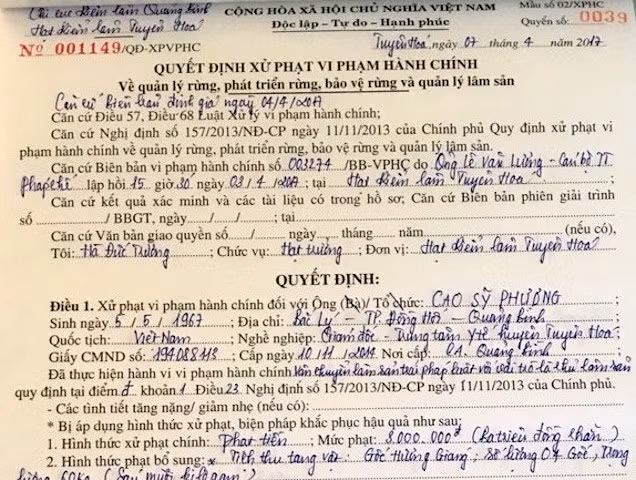 Chi cục Kiểm lâm Quảng Bình
CỘNG HÒA XÃ HỘI CHỦ NGHĨA VIỆT NAM
Mẫu số 02/XPHC
Hạt Kiểm lâm Tuyên Hoá
Độc lập - Tự do - Hạnh phúc
Quyển số: 0039
Nº 001149/QĐ-XPVPHC
Tuyên Hoá, ngày 07 tháng 4 năm 2017
QUYẾT ĐỊNH XỬ PHẠT VI PHẠM HÀNH CHÍNH
Về quản lý rừng, phát triển rừng, bảo vệ rừng và quản lý lâm sản
Căn cứ Biên bản định giá ngày 04/4/2017
Căn cứ Điều 57, Điều 68 Luật Xử lý vi phạm hành chính;
Căn cứ Nghị định số 157/2013/NĐ-CP ngày 11/11/2013 của Chính phủ Quy định xử phạt vi
phạm hành chính về quản lý rừng, phát triển rừng, bảo vệ rừng và quản lý lâm sản.
Căn cứ Biên bản vi phạm hành chính số 003274 /BB-VPHC do Ông Lê Văn Lương - Cán bộ TT
Pháp chế lập hồi 15 giờ 30 ngày 03/4/2017; tại Hạt Kiểm lâm Tuyên Hoá
Căn cứ kết quả xác minh và các tài liệu có trong hồ sơ; Căn cứ Biên bản phiên giải trình
số / BBGT, ngày / / ; tại
Căn cứ Văn bản giao quyền số / ngày tháng năm (nếu có),
Tôi: Hà Đức Trường ; Chức vụ: Hạt trưởng ; Đơn vị: Hạt Kiểm lâm Tuyên Hoá
QUYẾT ĐỊNH:
Điều 1. Xử phạt vi phạm hành chính đối với Ông (Bà)/ Tổ chức: CAO SỸ PHƯƠNG
Sinh ngày 5 / 5 / 1967 ; Địa chỉ: Bắc Lý - TP. Đồng Hới - Quảng Bình
Quốc tịch: Việt Nam ; Nghề nghiệp: Giám đốc - Trung tâm Y tế huyện Tuyên Hoá;
Giấy CMND số: 194088113 ; Cấp ngày 10 / 11 / Nơi cấp: CA. Quảng Bình
Đã thực hiện hành vi vi phạm hành chính Vận chuyển lâm sản trái pháp luật với vai trò là chủ lâm sản
quy định tại điểm đ khoản 1 Điều 23 Nghị định số 157/2013/NĐ-CP ngày 11/11/2013 của Chính phủ.
- Các tình tiết tăng nặng/ giảm nhẹ (nếu có):
* Bị áp dụng hình thức xử phạt, biện pháp khắc phục hậu quả như sau:
1. Hình thức xử phạt chính: Phạt tiền ; Mức phạt: 3.000.000đ (Ba triệu đồng chẵn)
2. Hình thức phạt bổ sung: * Tịch thu tang vật: Gốc Hương Giáng; số lượng 04 Gốc, Trọng
lượng 60kg (Sáu mươi kilôgam)